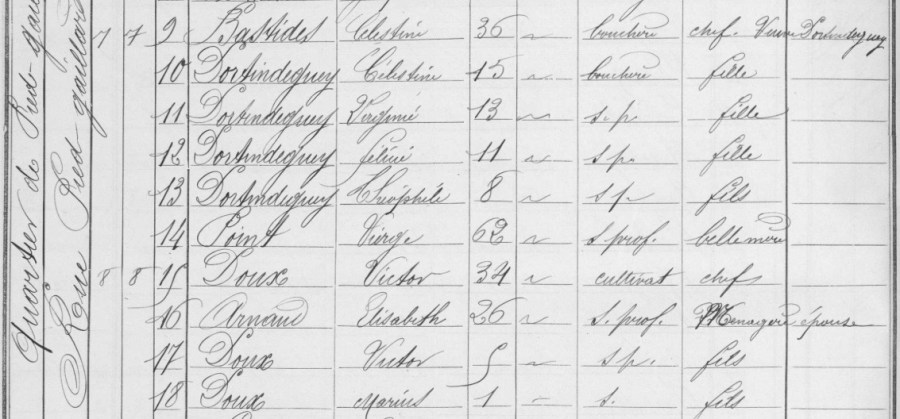 Quartier de Pied-gai
Rue Pied-gaillard
7 7 9 Bastides Célestine 36 " bouchère chef. Veuve Dortindeguey
10 Dortindeguey Célestine 15 " bouchère fille
11 Dortindeguey Virginie 13 " s. p. fille
12 Dortindeguey Féline 11 " s. p. fille
13 Dortindeguey Théophile 8 " s. p. fils
14 Point Vierge 62 " s. prof. belle mère
8 8 15 Doux Victor 34 " cultivat chef
16 Arnaud Elisabeth 26 " s. prof. Menagère épouse
17 Doux Victor 5 " s. p. fils
18 Doux Marius 1 " s. fils